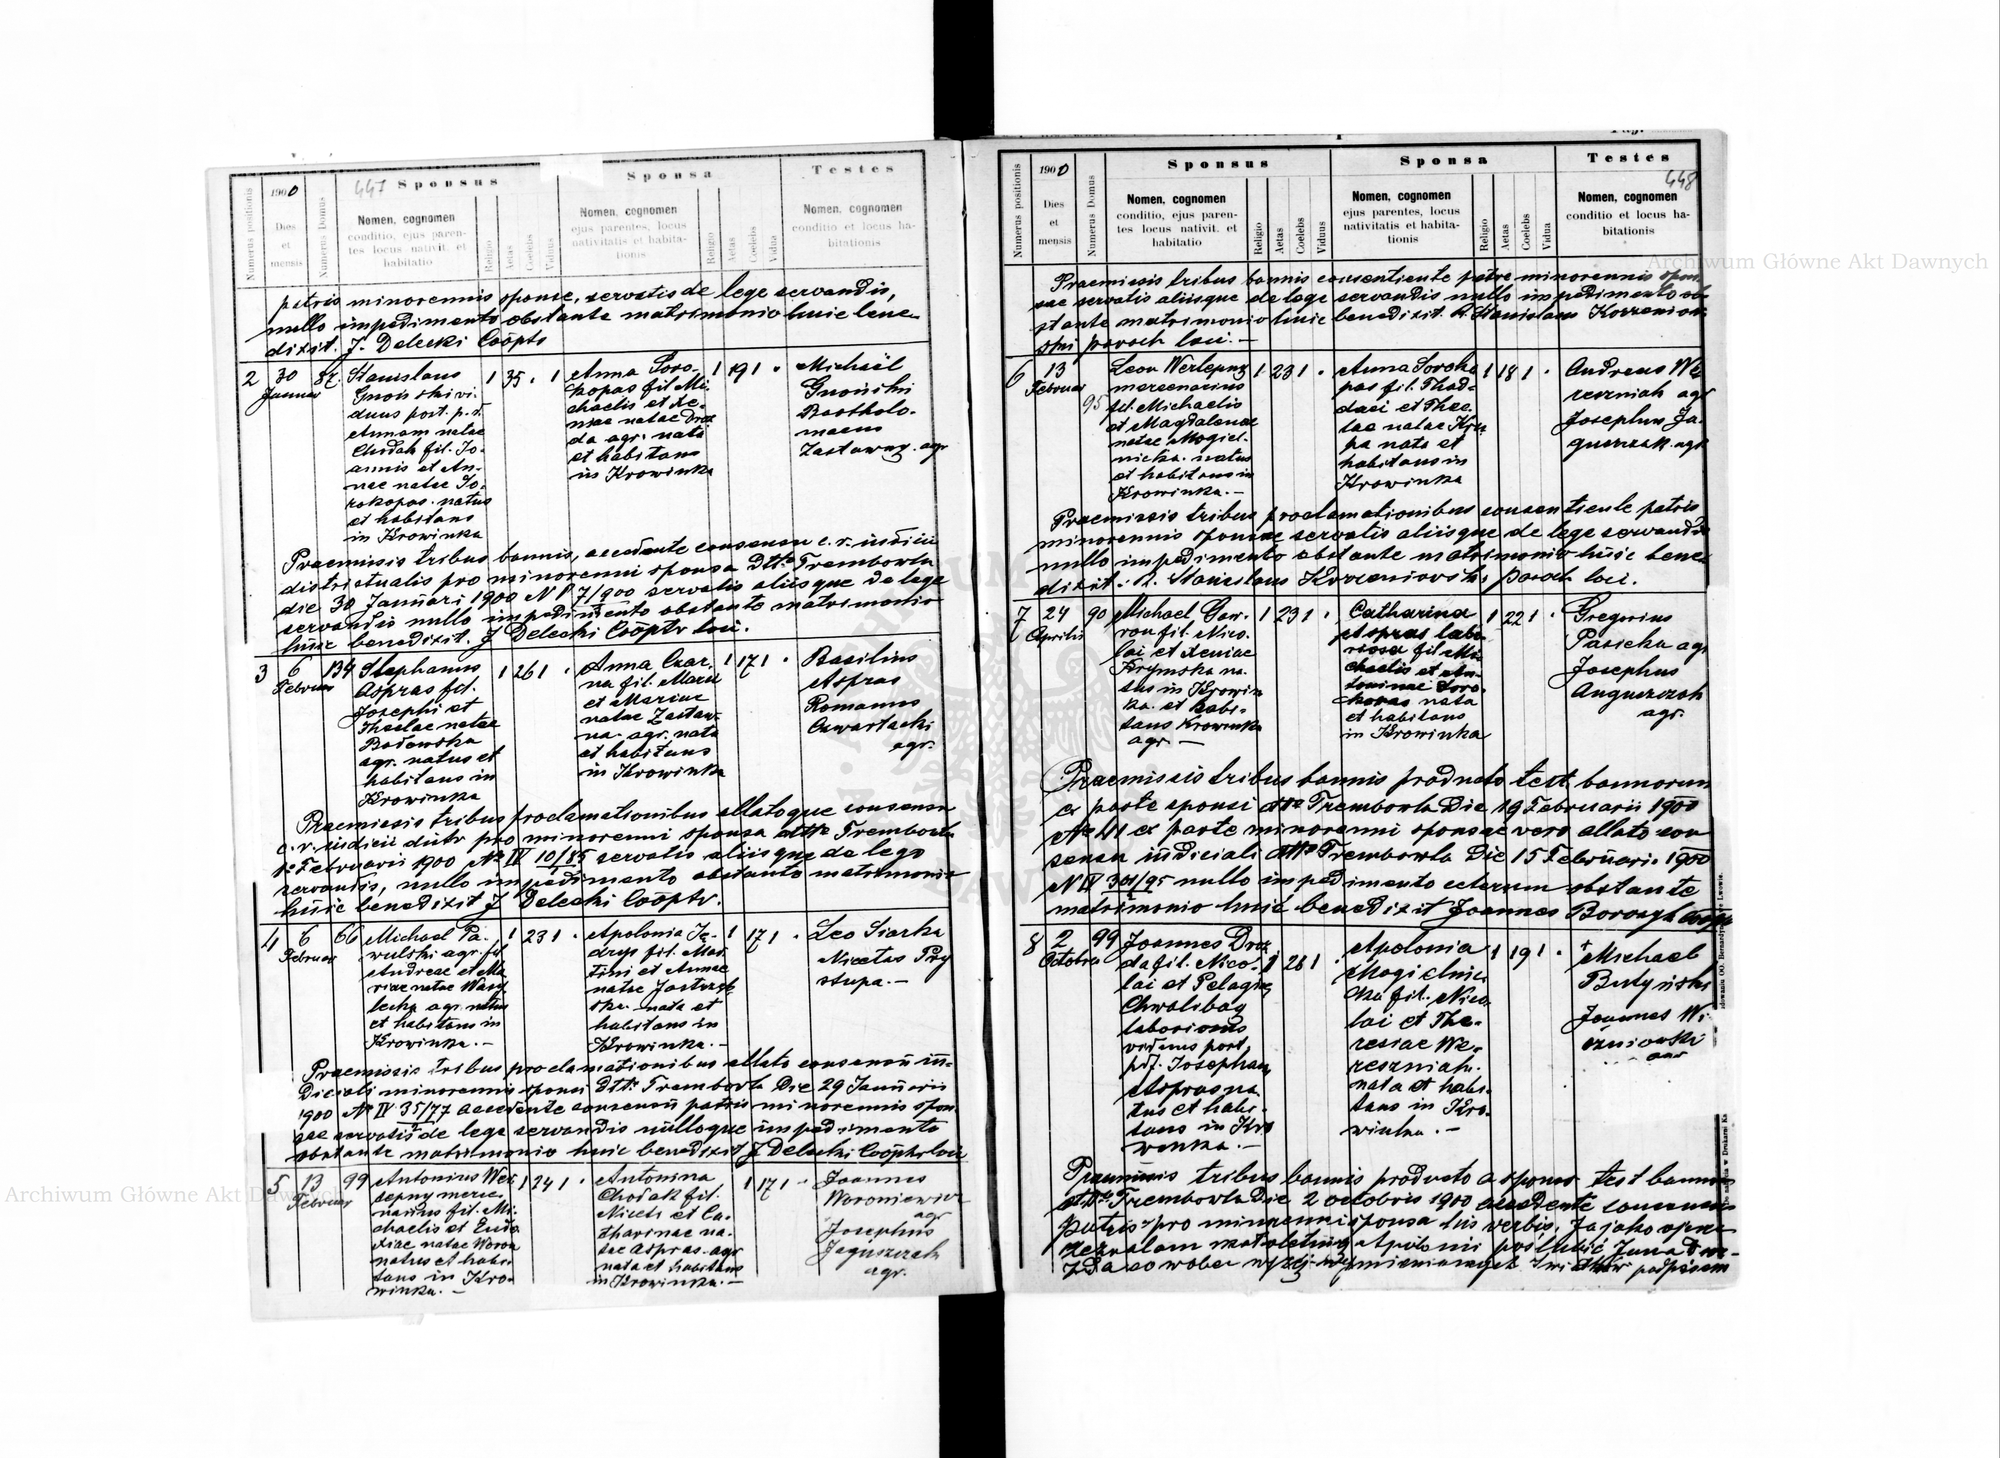 Numerus positionis
1900
Dies
et
mensis
Numerus Domus
447
Sponsus
Nomen, cognomen
conditio, ejus paren-
tes locus nativit. et
habitatio
Religio
Aetas
Coelebs
Viduus
Sponsa
Nomen, cognomen
ejus parentes, locus
nativitatis et habita-
tionis
Religio
Aetas
Coelebs
Vidua
Testes
Nomen, cognomen
conditio et locus ha-
bitationis
patris minorennis sponsae, servatis de lege servandis,
nullo impedimento obstante matrimonio huic bene-
dixit. J. Delecki Coopts
2
30
Januar
87.
Stanislaus
Gnoiński vi-
duus post. p. d.
Annam natae
Chodak fil. Jo-
annis et An-
nae natae So-
rokopas. natus
et habitans
in Krowinka
1 35. 1
Anna Soro-
kopas fil. Mi-
chaelis et Xe-
niae natae Droz
da agr. nata
et habitans
in Krowinka
1 19 1 .
Michaël
Gnoiński
Bartholo-
maeus
Zastawny. agr
Praemissis tribus bannis, accedente consensu c. r. iudicii
districtualis pro minorenni sponsa dtto Trembowla
die 30 Januari 1900 N V 7/900 servatis aliisque de lege
servandis nullo impedimento obstante matrimonio
huic benedixit. J Delecki Cooptr loci.
3
6
Februar
134
Stephanus
Aspras fil.
Josephi et
Theclae natae
Badowska
agr. natus et
habitans in
Krowinka
1 26 1 .
Anna Czar-
na fil. Marii
et Mariae
natae Zastaw-
na. agr. nata
et habitans
in Krowinka
1 17 1 .
Basilius
Aspras
Romanus
Czwartacki
agr.
Praemissis tribus proclamationibus allatoque consensu
c. r. iudicii distr pro minorenni sponsa dtto Trembowla
Februaris 1900 No IV 10/85 servatis aliisque de lege
servandis, nullo impedimento obstante matrimonio
huic benedixit J Delecki Cooptr.
4
6
Februar
66
Michael Pa-
wulski agr. fil
Andreae et Ma
riae natae Wasy
lecka agr. natus
et habitans in
Krowinka. —
1 23 1 .
Apolonia Je-
drys fil. Mar-
tini et Annae
natae Jastrzęb
ska. nata et
habitans in
Krowinka. —
1 17 1 .
Leo Siarka
Nicetas Pry
stupa. —
Praemissis tribus proclamationibus allato consensu iu-
diciali minorennis sponsi dtto Trembowla die 29 Januaris
1900 No IV 35/77 accedente consensu patris minorennis spon
sae servatis de lege servandis nulloque impedimento
obstante matrimonio huic benedixit J Delecki Cooptr loci
5
13
Februar
99
Antonius Wer
lepny merce-
narius fil. Mi-
chaelis et Eudo
xiae natae Woron
natus et habi-
tans in Kro-
winka. —
1 24 1 .
Antonina
Chodak fil.
Niceti et Ca-
tharinae na-
tae Aspras. agr
nata et habitans
in Krowinka. —
1 17 1 .
Joannes
Woroniewicz
agr
Josephus
Jaguszczak
agr.
Numerus positionis
1900
Dies
et
mensis
Numerus Domus
Sponsus
Nomen, cognomen
conditio, ejus paren-
tes locus nativit. et
habitatio
Religio
Aetas
Coelebs
Viduus
Sponsa
Nomen, cognomen
ejus parentes, locus
nativitatis et habita-
tionis
Religio
Aetas
Coelebs
Vidua
Testes
448
Nomen, cognomen
conditio et locus ha-
bitationis
Praemissis tribus bannis consentiente patre minorennis spon-
sae servatis aliisque de lege servandis nullo impedimento ob-
stante matrimonio huic benedixit. R. Stanislaus Korzeniow
ski paroch loci. —
6
13
Februar
95
Leon Werlepny
mercenarius
fil. Michaelis
et Magdalenae
natae Mogiel-
nicka. natus
et habitans in
Krowinka. —
1 23 1 .
Anna Soroko
pas fil. Thad-
daei et Thec-
lae natae Kru
pa nata et
habitans in
Krowinka
1 18 1 .
Andreas We
reszniak agr
Josephus Ja-
guszczak. agr
Praemissis tribus proclamationibus consentiente patris
minorennis sponsae servatis aliisque de lege servandis
nullo impedimento obstante matrimonio huic bene-
dixit. R. Stanislaus Korzeniowski paroch loci.
7
24
Aprilis
90
Michael Gaw-
ron fil. Nico-
lai et Xeniae
Krymska na-
tus in Krowin
ka. et habi-
tans Krowinka
agr. —
1 23 1 .
Catharina
Aspras labo-
riosa fil Mi-
chaelis et An-
toninae Soro-
kopas nata
et habitans
in Krowinka
1 22 1 .
Gregorius
Pasieka agr
Josephus
Auguszczak
agr.
Praemissis tribus bannis producto test. bannorum
ex parte sponsi dtto Trembowla die 19 Februarii 1900
No 41 ex parte minorenni sponsae vero allato con
sensu iudiciali dtto Trembowla die 15 Februarii 1900
N IV 301/95 nullo impedimento ceterum obstante
matrimonio huic benedixit Joannes Borosyk Coop
8
2
Octobris
99
Joannes Droz
da fil. Nico-
lai et Pelagia
Chwalibog
laboriosus
viduus post
pdf. Josepham
Aspras na-
tus et habi-
tans in Kro
winka. —
1 26 1 .
Apolonia
Mogielnic
ka fil. Nico-
lai et The-
resiae We-
reszniak.
nata et habi-
tans in Kro-
winka. —
1 19 1 .
+
Michael
Butyński
Joannes Wi-
śniowski
agr
Praemissis tribus bannis producto a sponso test bannor
dtto Trembowla die 2 octobris 1900 accedente consensu
patris pro minorenni sponsa his verbis, Ja jako ojciec
zezwalam małoletniej Apolonii poślubić Jana Dro-
zda co wobec wyżej wymienionych świadków podpisem
Archiwum Główne Akt Dawnych
Archiwum Główne Akt Dawnych